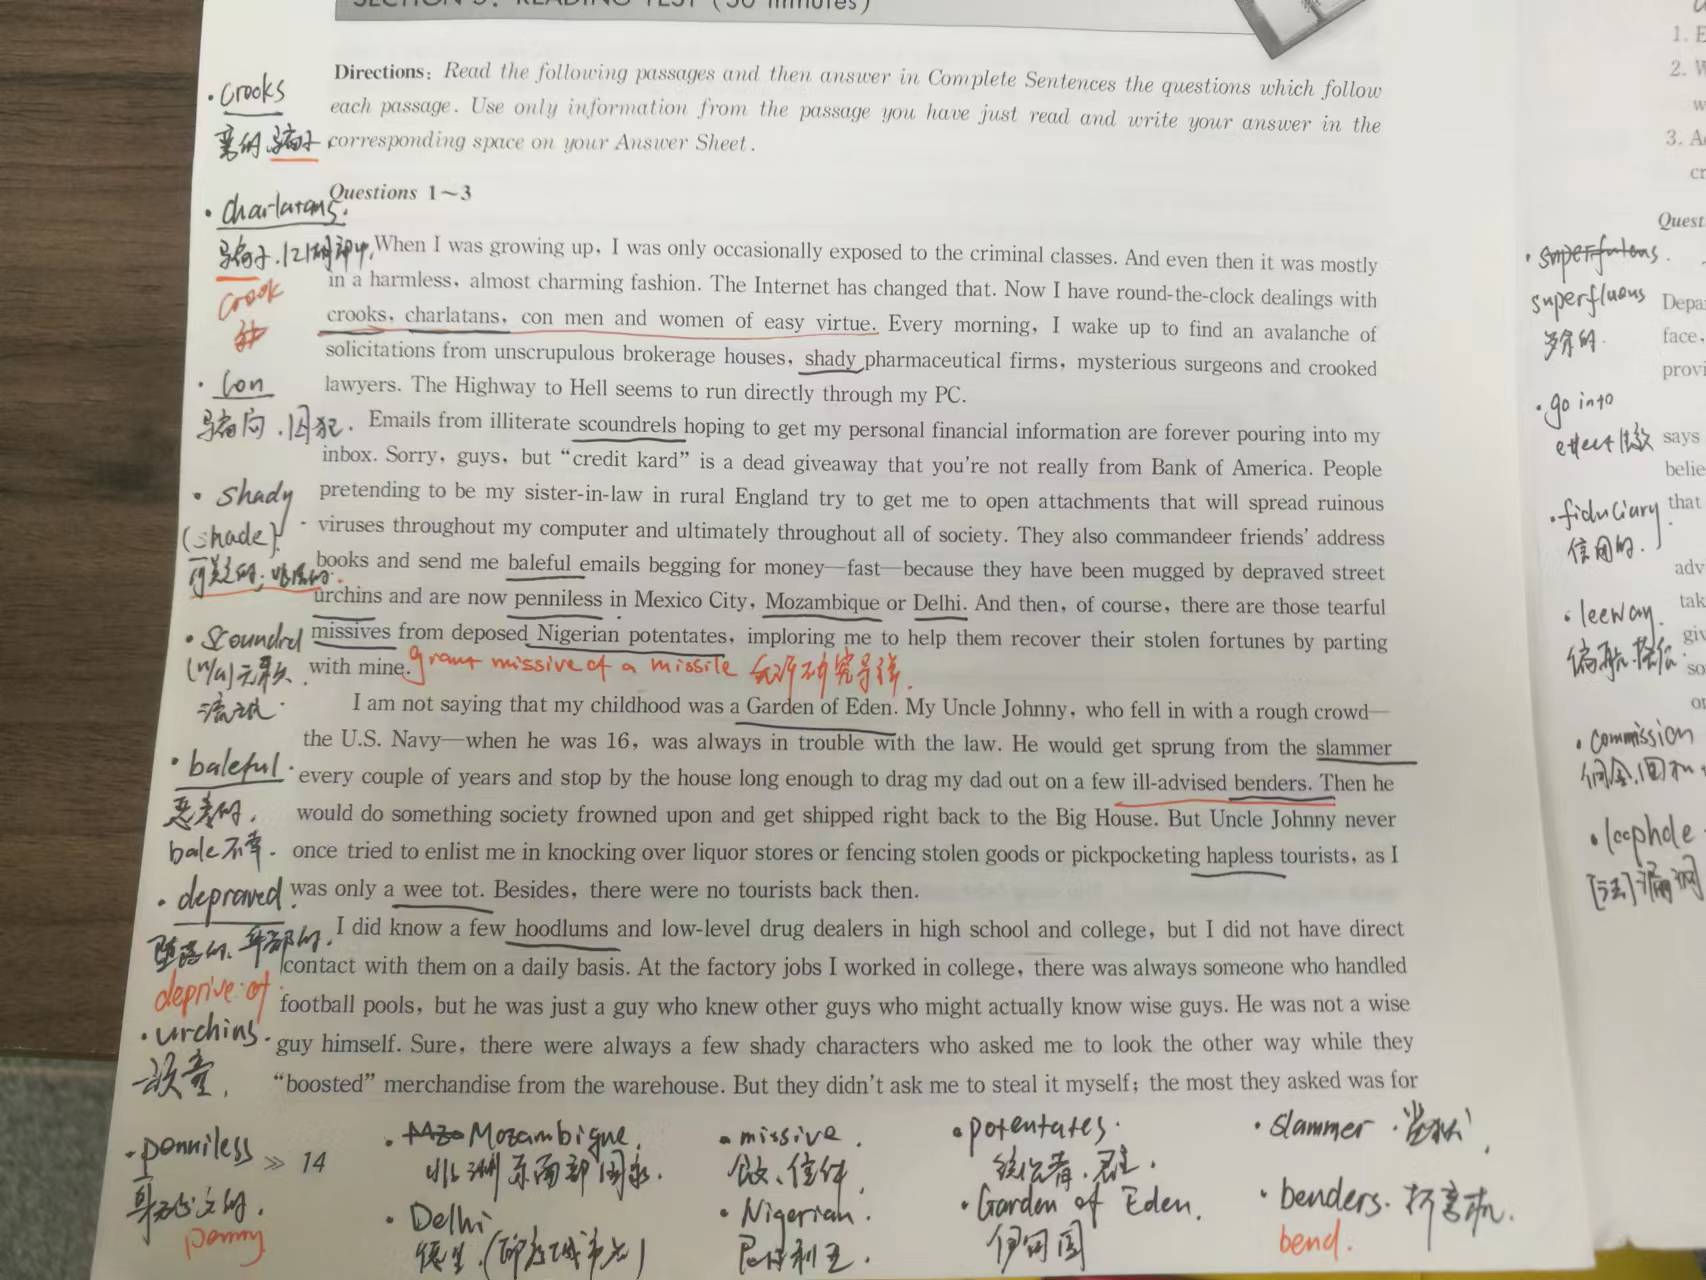 SECTION 3: READING TEST (30 minutes)
Directions: Read the following passages and then answer in Complete Sentences the questions which follow
each passage. Use only information from the passage you have just read and write your answer in the
corresponding space on your Answer Sheet.
Questions 1~3
When I was growing up, I was only occasionally exposed to the criminal classes. And even then it was mostly
in a harmless, almost charming fashion. The Internet has changed that. Now I have round-the-clock dealings with
crooks, charlatans, con men and women of easy virtue. Every morning, I wake up to find an avalanche of
solicitations from unscrupulous brokerage houses, shady pharmaceutical firms, mysterious surgeons and crooked
lawyers. The Highway to Hell seems to run directly through my PC.
Emails from illiterate scoundrels hoping to get my personal financial information are forever pouring into my
inbox. Sorry, guys, but “credit kard” is a dead giveaway that you're not really from Bank of America. People
pretending to be my sister-in-law in rural England try to get me to open attachments that will spread ruinous
viruses throughout my computer and ultimately throughout all of society. They also commandeer friends' address
books and send me baleful emails begging for money—fast—because they have been mugged by depraved street
urchins and are now penniless in Mexico City, Mozambique or Delhi. And then, of course, there are those tearful
missives from deposed Nigerian potentates, imploring me to help them recover their stolen fortunes by parting
with mine.
grant missive of a missile 允许研究导弹.
I am not saying that my childhood was a Garden of Eden. My Uncle Johnny, who fell in with a rough crowd—
the U.S. Navy—when he was 16, was always in trouble with the law. He would get sprung from the slammer
every couple of years and stop by the house long enough to drag my dad out on a few ill-advised benders. Then he
would do something society frowned upon and get shipped right back to the Big House. But Uncle Johnny never
once tried to enlist me in knocking over liquor stores or fencing stolen goods or pickpocketing hapless tourists, as I
was only a wee tot. Besides, there were no tourists back then.
I did know a few hoodlums and low-level drug dealers in high school and college, but I did not have direct
contact with them on a daily basis. At the factory jobs I worked in college, there was always someone who handled
football pools, but he was just a guy who knew other guys who might actually know wise guys. He was not a wise
guy himself. Sure, there were always a few shady characters who asked me to look the other way while they
“boosted” merchandise from the warehouse. But they didn't ask me to steal it myself; the most they asked was for
≫ 14
crooks
弯的.骗子
charlatans.
骗子.江湖郎中.
crook
con
骗局.囚犯.
shady
(shade)
可疑的.
scoundrel
(n/a)
baleful
恶毒的.
bale 不幸.
depraved
堕落的.
deprive of
urchins
顽童.
penniless
身无分文的.
penny
Mozambique.
非洲东南部国家.
Delhi
德里.(印度城市)
missive.
公文、信件.
Nigerian.
尼日利亚.
potentates.
统治者.君主.
Garden of Eden.
伊甸园
slammer.
benders.
bend.
superfluous
多余的.
go into
effect 生效
fiduciary.
信用的.
leeway.
commission
佣金.回扣
loophole
[法]漏洞
1. E
2. W
3. A
Quest
Depa
face,
provi
says
belie
that
adv
tak
giv
so